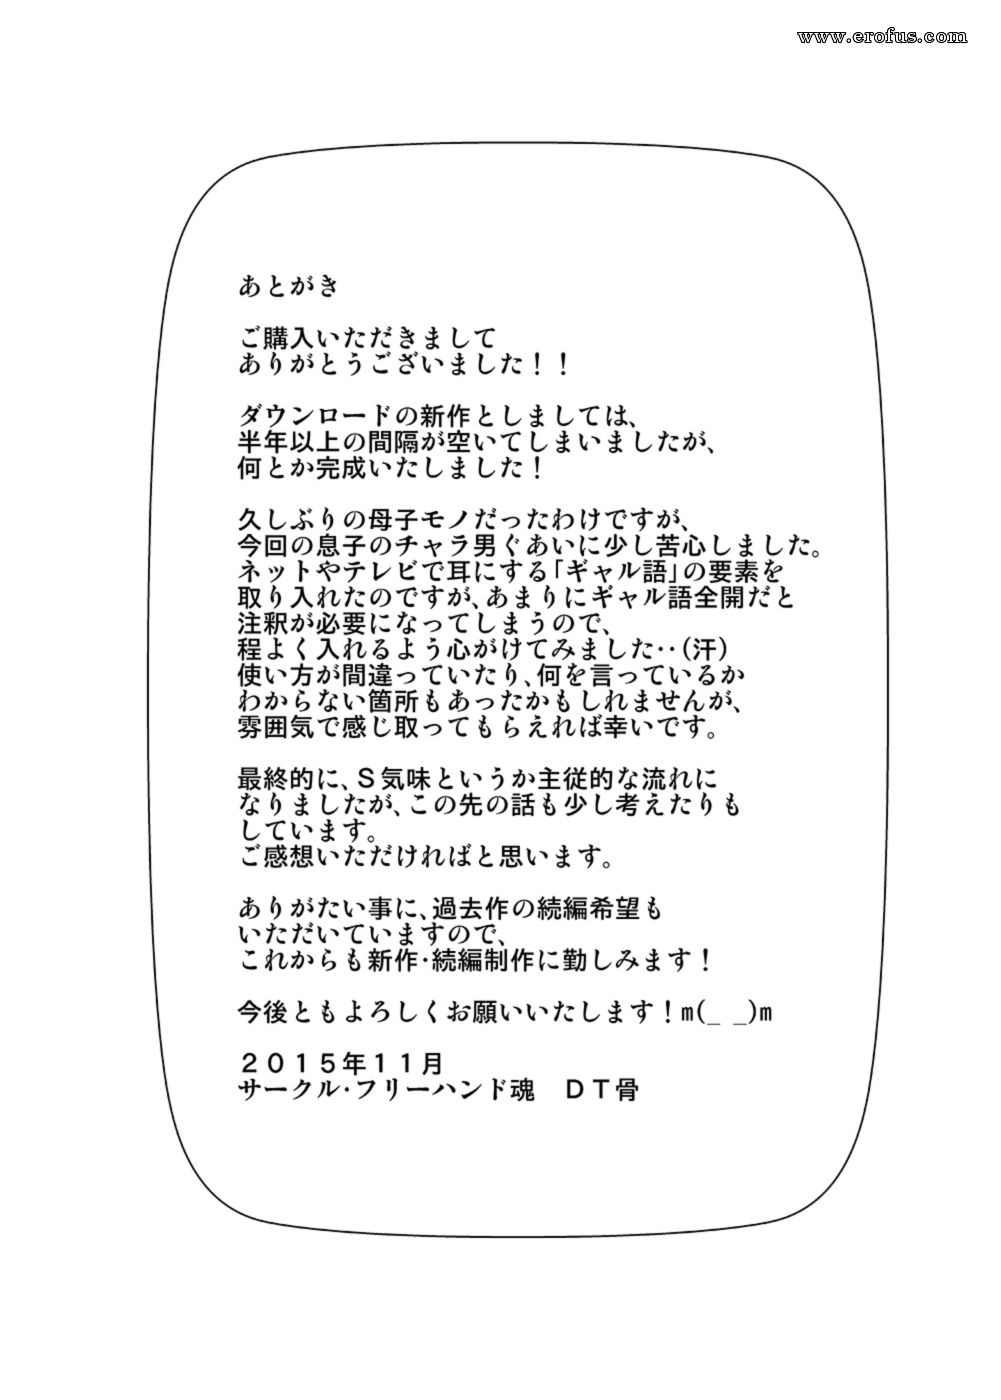 www.erofus.com
あとがき
ご購入いただきまして
ありがとうございました！！
ダウンロードの新作としましては、
半年以上の間隔が空いてしまいましたが、
何とか完成いたしました！
久しぶりの母子モノだったわけですが、
今回の息子のチャラ男ぐあいに少し苦心しました。
ネットやテレビで耳にする「ギャル語」の要素を
取り入れたのですが、あまりにギャル語全開だと
注釈が必要になってしまうので、
程よく入れるよう心がけてみました‥（汗）
使い方が間違っていたり、何を言っているか
わからない箇所もあったかもしれませんが、
雰囲気で感じ取ってもらえれば幸いです。
最終的に、Ｓ気味というか主従的な流れに
なりましたが、この先の話も少し考えたりも
しています。
ご感想いただければと思います。
ありがたい事に、過去作の続編希望も
いただいていますので、
これからも新作・続編制作に勤しみます！
今後ともよろしくお願いいたします！m(_ _)m
２０１５年１１月
サークル・フリーハンド魂　ＤＴ骨